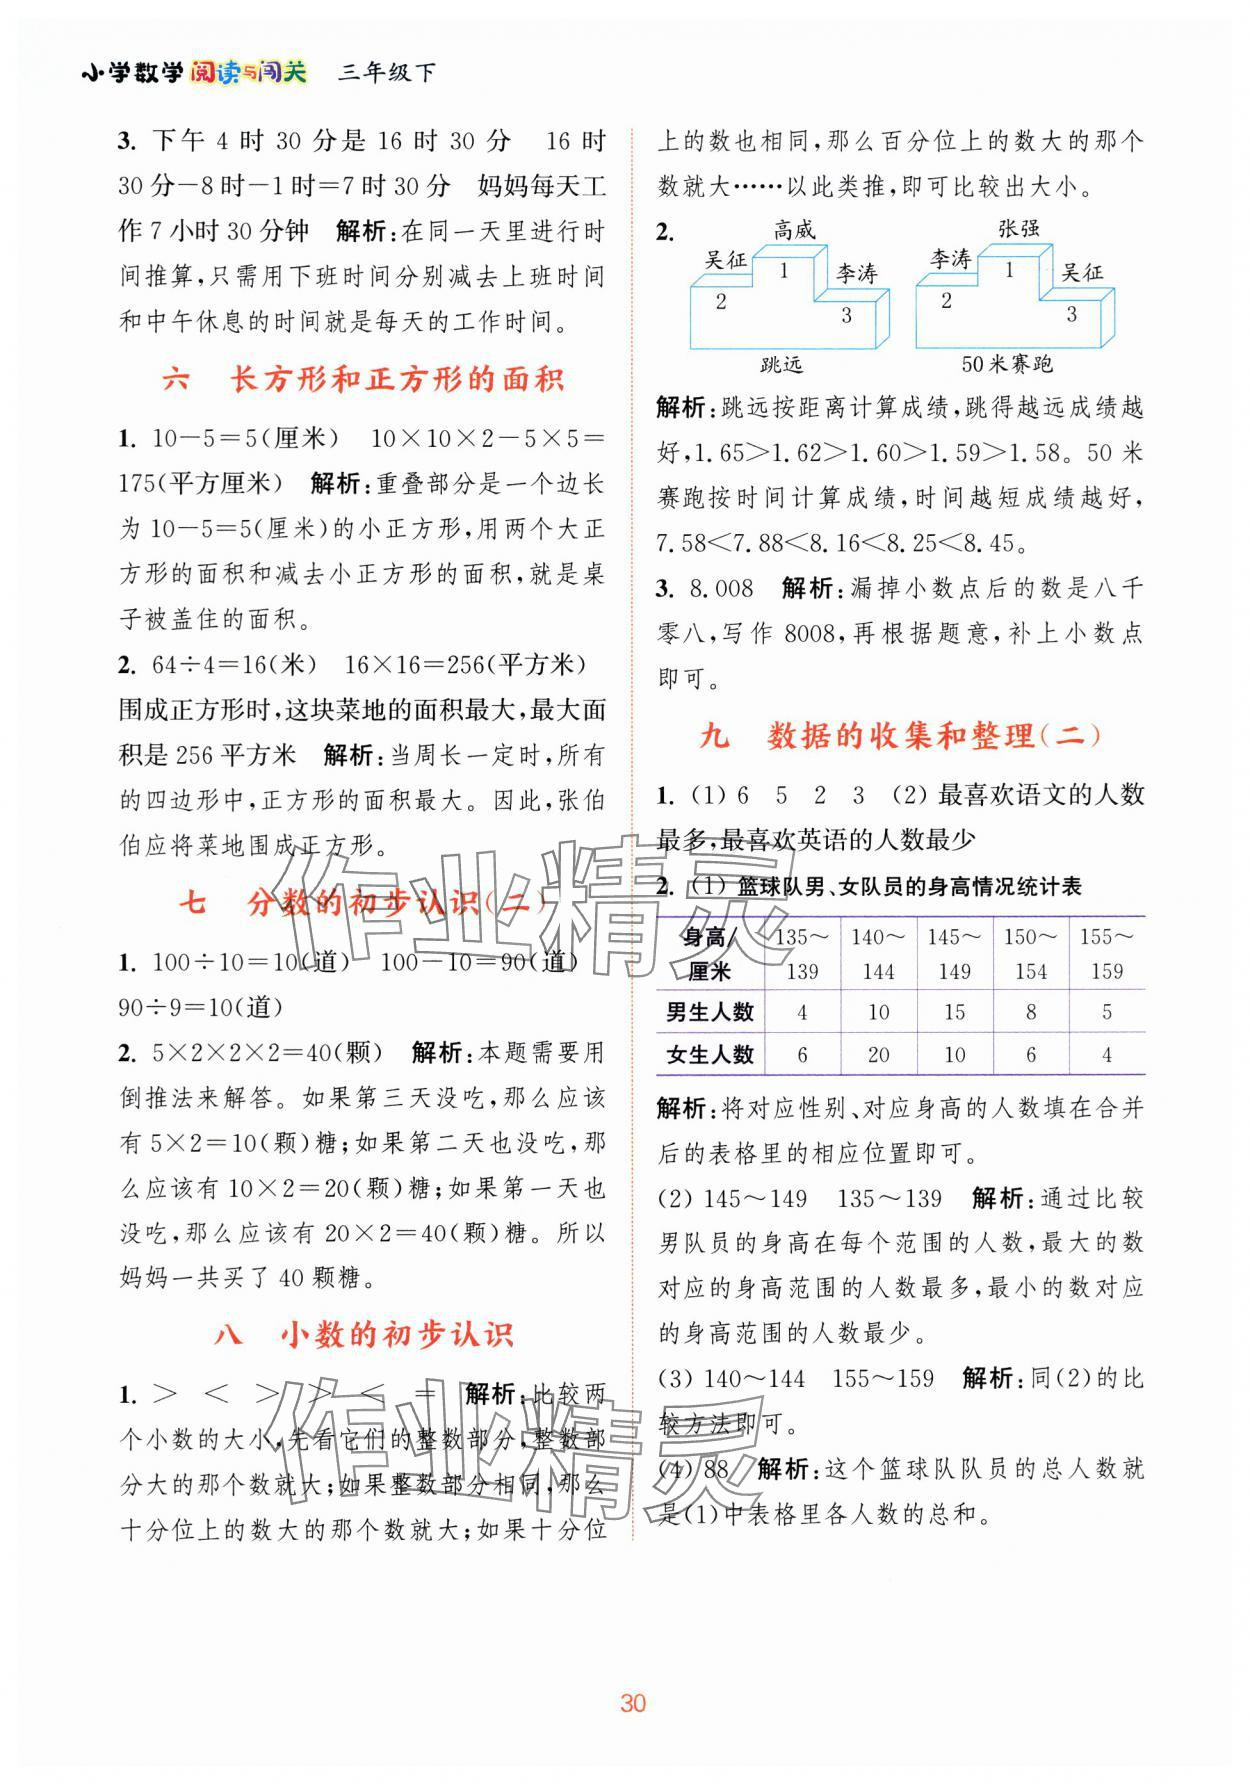 小学数学 阅读与闯关 三年级下
3. 下午 4 时 30 分是 16 时 30 分　16 时
30 分－8 时－1 时＝7 时 30 分　妈妈每天工
作 7 小时 30 分钟　解析:在同一天里进行时
间推算,只需用下班时间分别减去上班时间
和中午休息的时间就是每天的工作时间。
六　长方形和正方形的面积
1. 10－5＝5(厘米)　10×10×2－5×5＝
175(平方厘米)　解析:重叠部分是一个边长
为 10－5＝5(厘米)的小正方形,用两个大正
方形的面积和减去小正方形的面积,就是桌
子被盖住的面积。
2. 64÷4＝16(米)　16×16＝256(平方米)
围成正方形时,这块菜地的面积最大,最大面
积是 256 平方米　解析:当周长一定时,所有
的四边形中,正方形的面积最大。因此,张伯
伯应将菜地围成正方形。
七　分数的初步认识(二)
1. 100÷10＝10(道)　100－10＝90(道)
90÷9＝10(道)
2. 5×2×2×2＝40(颗)　解析:本题需要用
倒推法来解答。如果第三天没吃,那么应该
有 5×2＝10(颗)糖;如果第二天也没吃,那
么应该有 10×2＝20(颗)糖;如果第一天也
没吃,那么应该有 20×2＝40(颗)糖。所以
妈妈一共买了 40 颗糖。
八　小数的初步认识
1. ＞　＜　＞　＞　＜　＝　解析:比较两
个小数的大小,先看它们的整数部分,整数部
分大的那个数就大;如果整数部分相同,那么
十分位上的数大的那个数就大;如果十分位
上的数也相同,那么百分位上的数大的那个
数就大……以此类推,即可比较出大小。
2.
高威
吴征 1 李涛
2 3
跳远
张强
李涛 1 吴征
2 3
50 米赛跑
解析:跳远按距离计算成绩,跳得越远成绩越
好,1.65＞1.62＞1.60＞1.59＞1.58。50 米
赛跑按时间计算成绩,时间越短成绩越好,
7.58＜7.88＜8.16＜8.25＜8.45。
3. 8.008　解析:漏掉小数点后的数是八千
零八,写作 8008,再根据题意,补上小数点
即可。
九　数据的收集和整理(二)
1. (1) 6　5　2　3　(2) 最喜欢语文的人数
最多,最喜欢英语的人数最少
2. (1) 篮球队男、女队员的身高情况统计表
身高/ 135～ 140～ 145～ 150～ 155～
厘米 139 144 149 154 159
男生人数 4 10 15 8 5
女生人数 6 20 10 6 4
解析:将对应性别、对应身高的人数填在合并
后的表格里的相应位置即可。
(2) 145～149　135～139　解析:通过比较
男队员的身高在每个范围的人数,最大的数
对应的身高范围的人数最多,最小的数对应
的身高范围的人数最少。
(3) 140～144　155～159　解析:同(2)的比
较方法即可。
(4) 88　解析:这个篮球队队员的总人数就
是(1)中表格里各人数的总和。
作业精灵
作业精灵
30